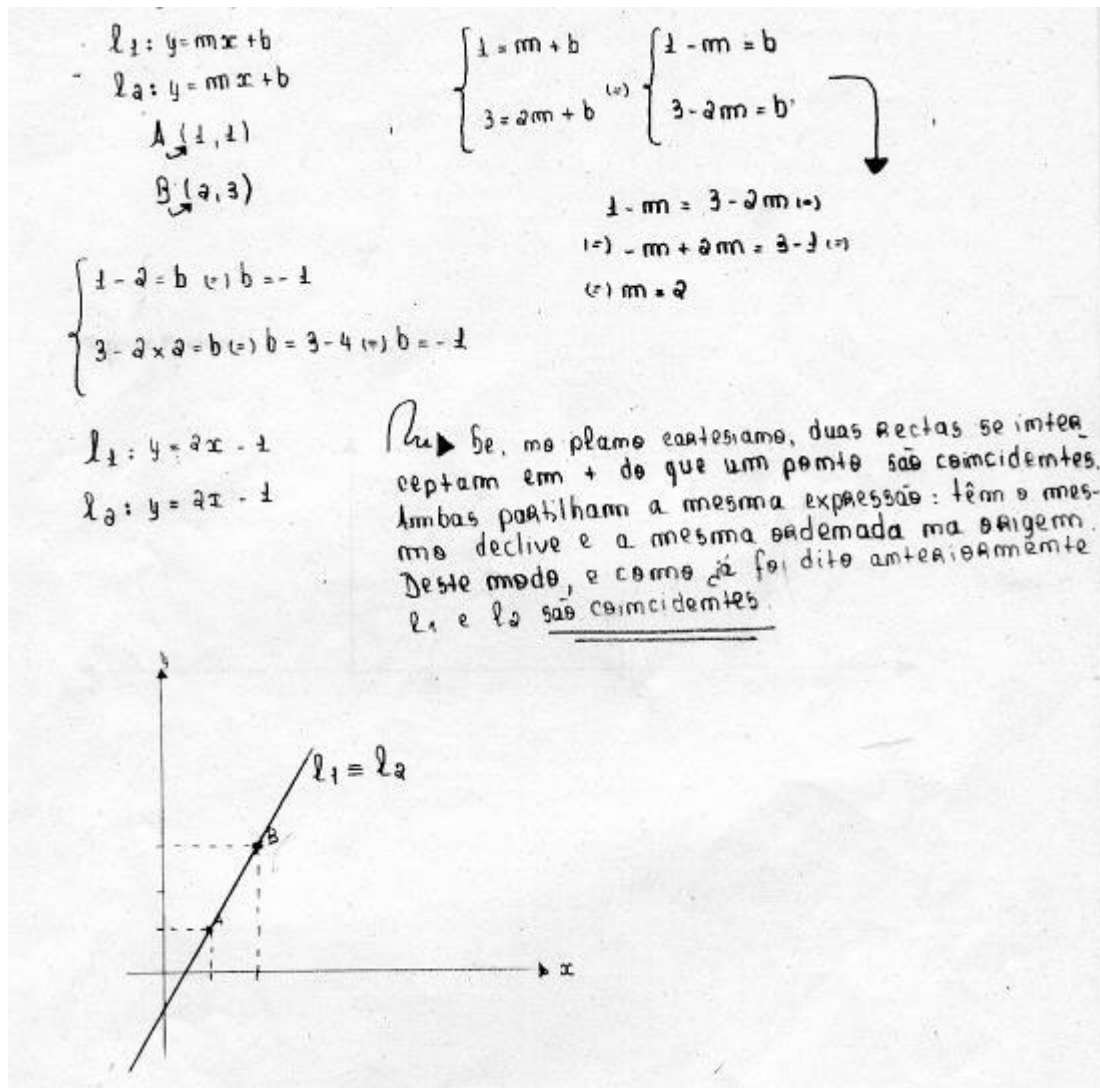 l1: y = mx + b
l2: y = mx + b
A (1, 1)
B (2, 3)
{ 1 = m + b (=) { 1 - m = b
{ 3 = 2m + b { 3 - 2m = b
1 - m = 3 - 2m (=)
(=) - m + 2m = 3 - 1 (=)
(=) m = 2
{ 1 - 2 = b (=) b = - 1
{ 3 - 2 x 2 = b (=) b = 3 - 4 (=) b = - 1
l1: y = 2x - 1
l2: y = 2x - 1
Se, no plano cartesiano, duas rectas se inter
ceptam em + do que um ponto são coincidentes.
Ambas partilham a mesma expressão: têm o mes-
mo declive e a mesma ordenada na origem.
Deste modo, e como já foi dito anteriormente
l1 e l2 são coincidentes.
y
l1 ≡ l2
B
A
x